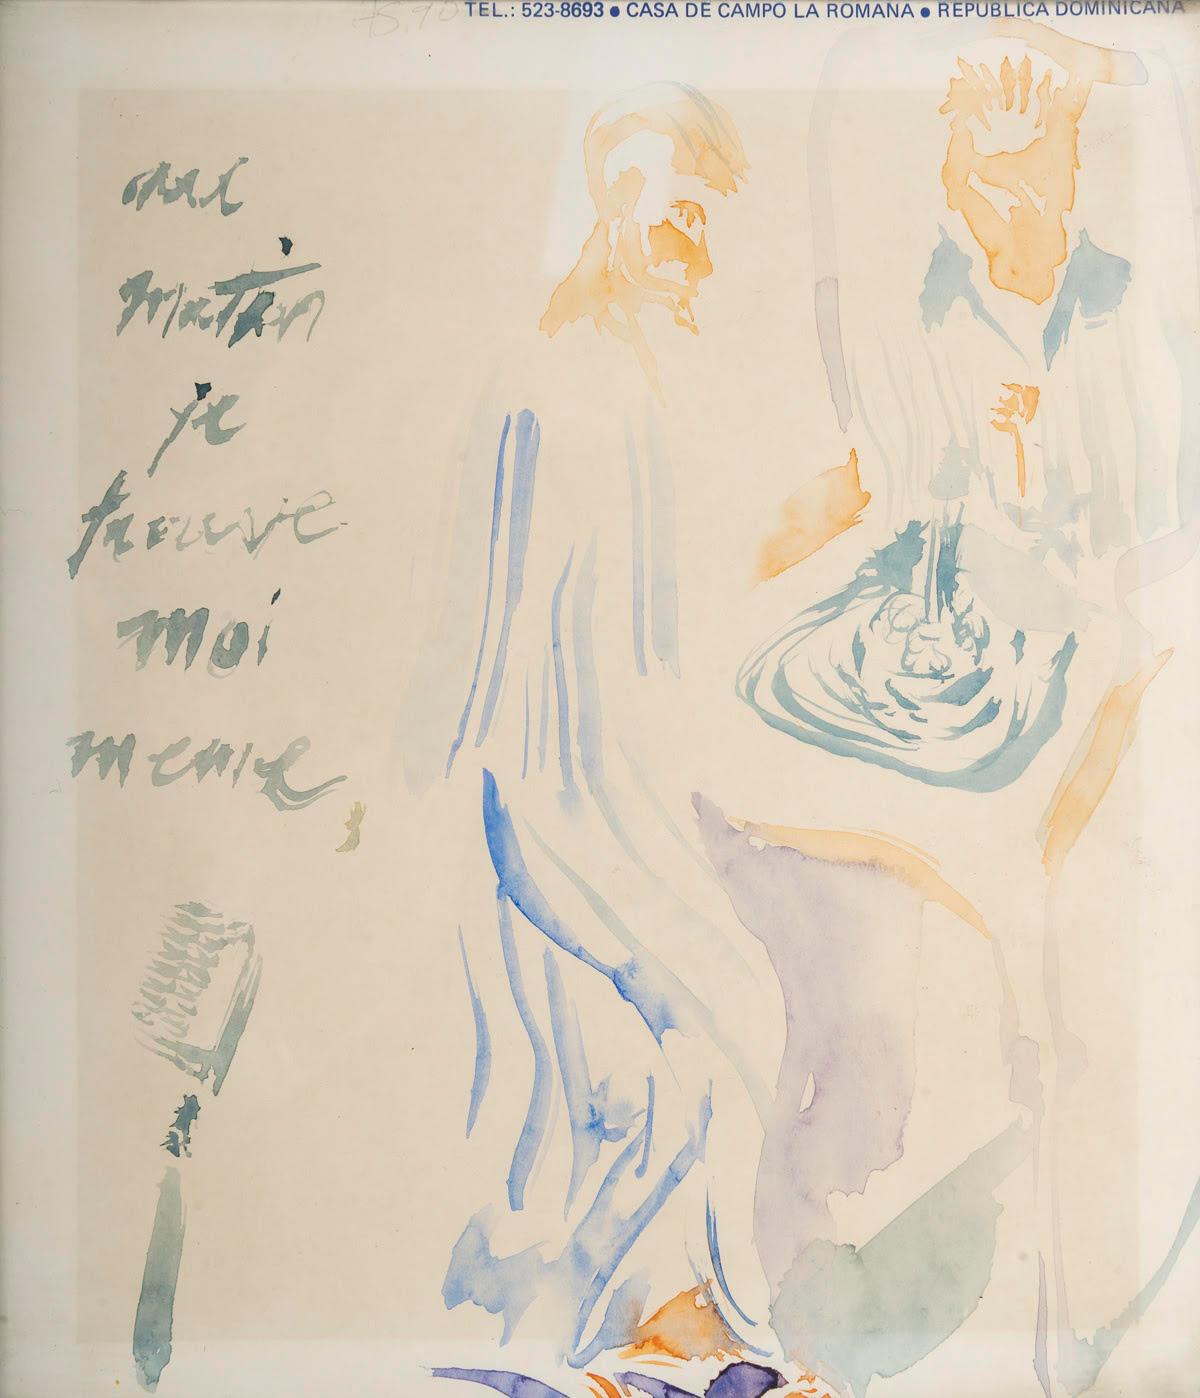 TEL.: 523-8693 ● CASA DE CAMPO LA ROMANA ● REPUBLICA DOMINICANA
au
matin
je
trouve
moi
meme